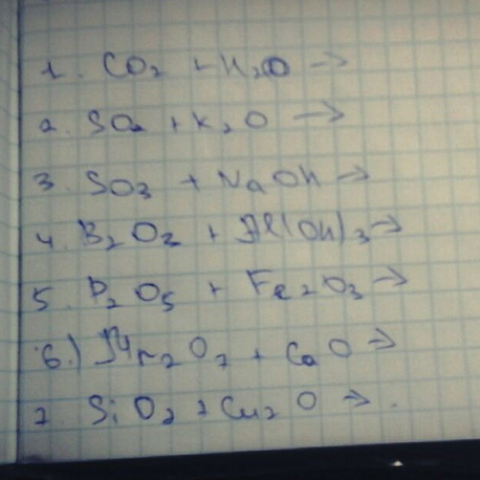 1. CO₂ + H₂O →
2. SO₂ + K₂O →
3. SO₃ + NaOH →
4. B₂O₃ + Al(OH)₃ →
5. P₂O₅ + Fe₂O₃ →
6.) Mn₂O₇ + CaO →
7. SiO₂ + Cu₂O → .